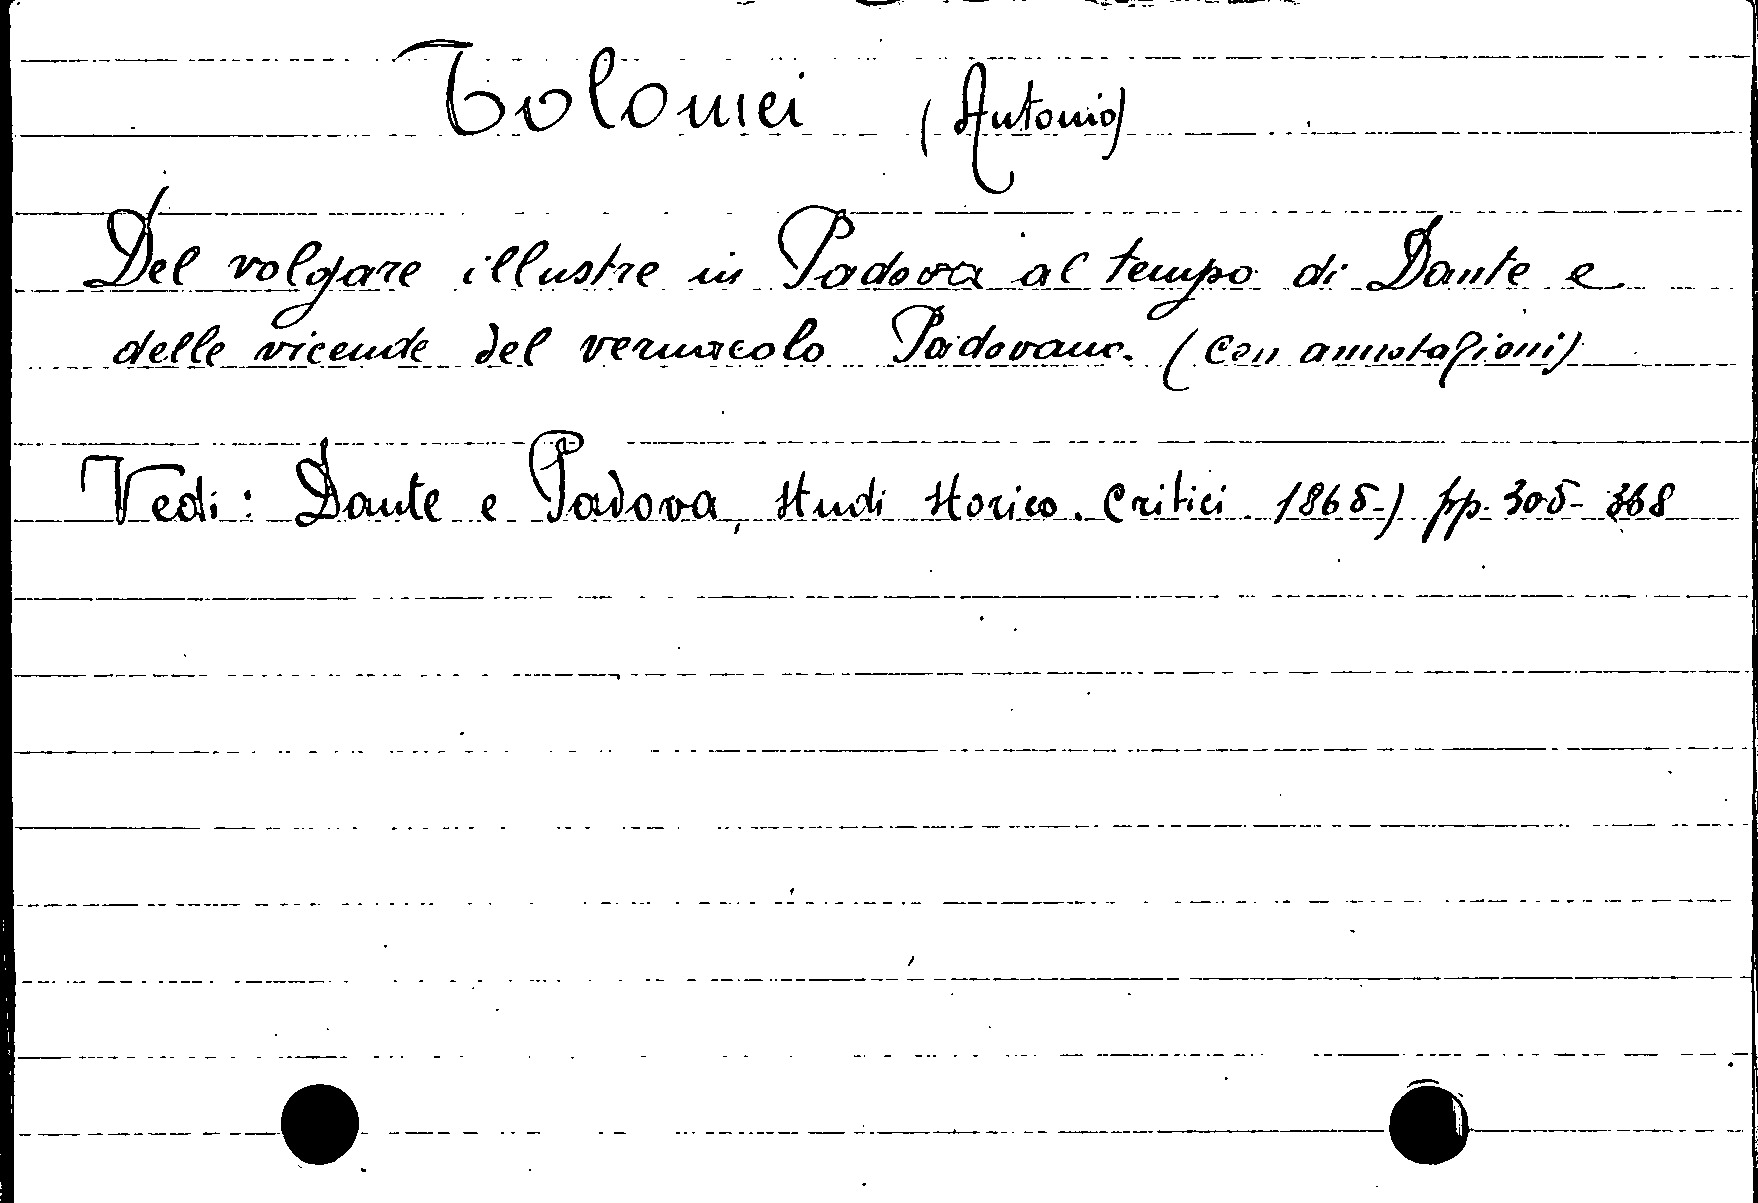 Tolomei (Antonio)
Del volgare illustre in Padova al tempo di Dante e
delle vicende del vernacolo Padovano. (con annotazioni)
Vedi: Dante e Padova, studi storico. critici. 1865-) pp. 305-368